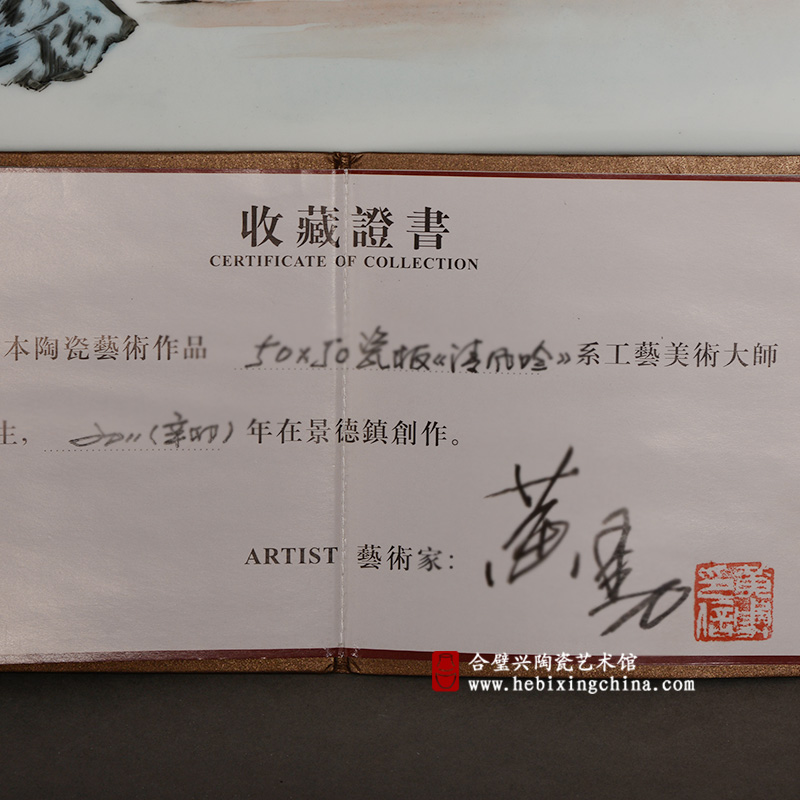 收藏證書
CERTIFICATE OF COLLECTION
本陶瓷藝術作品 50×50瓷板《清风吟》系工藝美術大師
生, 2011(辛卯)年在景德鎮創作。
ARTIST 藝術家: 黄勇
合璧兴陶瓷艺术馆
www.hebixingchina.com